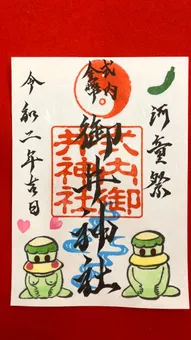 河童祭
式内
金幣
御井神社
大山御
井神社
令和二年吉日